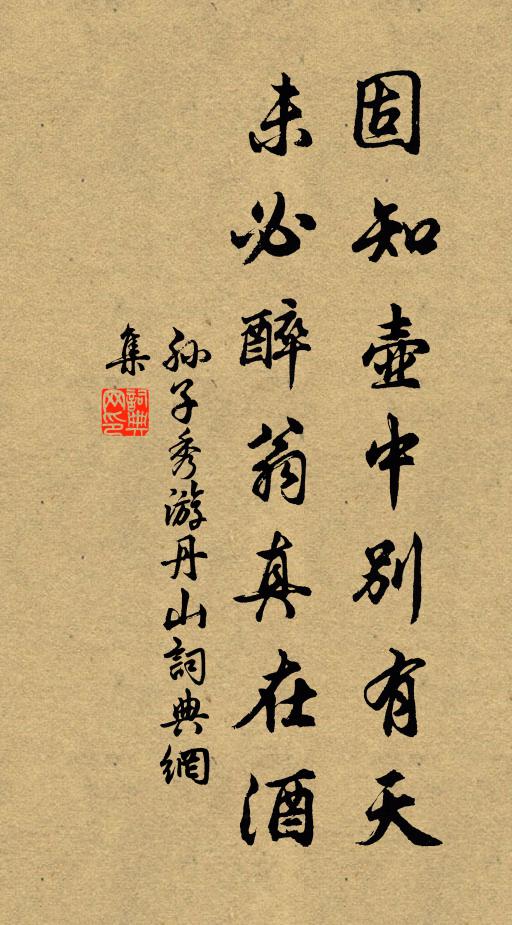 固知壺中別有天
未必醉翁真在酒
孙子秀游丹山詞典網
集
詞典
网印